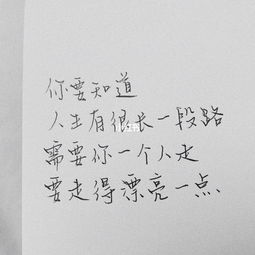 你要知道
人生有很长一段路
需要你一个人走
要走得漂亮一点
小红书